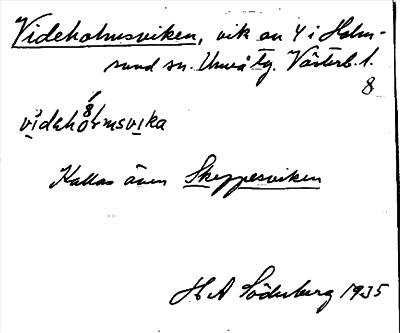 Videholmsviken, vik av Y i Holm-
sund sn. Umeå tg. Västerb. l.
8
videhólmsvika
Kallas även Skeppesviken
H A Söderberg 1935